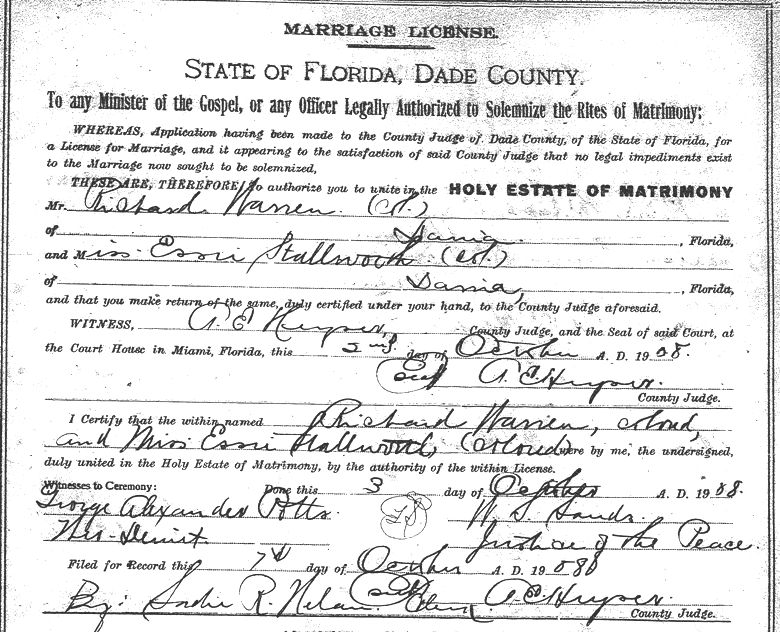 MARRIAGE LICENSE.
STATE OF FLORIDA, DADE COUNTY.
To any Minister of the Gospel, or any Officer Legally Authorized to Solemnize the Rites of Matrimony:
WHEREAS, Application having been made to the County Judge of Dade County, of the State of Florida, for
a License for Marriage, and it appearing to the satisfaction of said County Judge that no legal impediments exist
to the Marriage now sought to be solemnized,
THESE ARE, THEREFORE, To authorize you to unite in the HOLY ESTATE OF MATRIMONY
Mr. Richard Warren (Col.)
of Dania , Florida,
and Miss Essie Stallworth (Col.)
of Dania, , Florida,
and that you make return of the same, duly certified under your hand, to the County Judge aforesaid.
WITNESS, County Judge, and the Seal of said Court, at
the Court House in Miami, Florida, this 2nd day of October A. D. 1908.
Seal
County Judge.
I Certify that the within named Richard Warren, colored,
and Miss Essie Stallworth, (Colored) were by me, the undersigned,
duly united in the Holy Estate of Matrimony, by the authority of the within License.
Witnesses to Ceremony: Done this 3 day of October A. D. 1908.
George Alexander Potts W. S. Sands
Justice of the Peace.
Filed for Record this 7th day of October A. D. 1908
By: R.
County Judge.